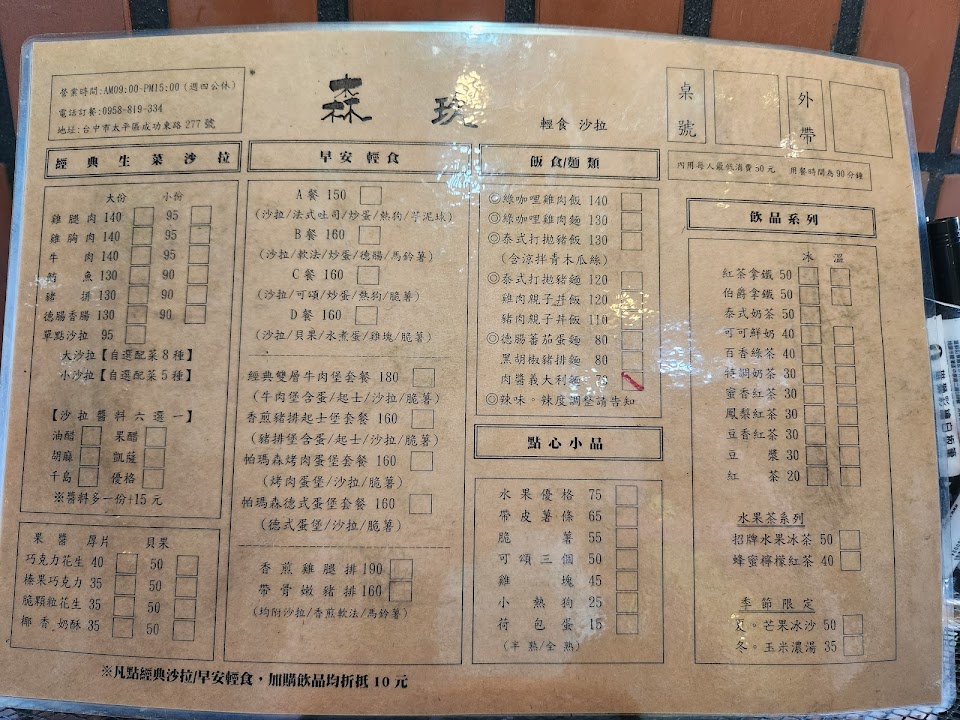 營業時間:AM09:00-PM15:00 (週四公休)
電話訂餐:0958-819-334
地址:台中市太平區成功東路 277 號
森 玥
輕食 沙拉
桌號
外帶
內用每人最低消費 50 元 用餐時間為 90 分鐘
經典生菜沙拉
大份 小份
雞腿肉 140 95
雞胸肉 140 95
牛肉 140 95
鮪魚 130 90
豬排 130 90
德腸香腸 130 90
單點沙拉 95
大沙拉【自選配菜 8 種】
小沙拉【自選配菜 5 種】
【沙拉醬料六選一】
油醋 果醋
胡麻 凱薩
千島 優格
※醬料多一份+15 元
果醬 厚片 貝果
巧克力花生 40 50
榛果巧克力 35 50
脆顆粒花生 35 50
椰香奶酥 35 50
早安輕食
A 餐 150
(沙拉/法式吐司/炒蛋/熱狗/芋泥球)
B 餐 160
(沙拉/軟法/炒蛋/德腸/馬鈴薯)
C 餐 160
(沙拉/可頌/炒蛋/熱狗/脆薯)
D 餐 160
(沙拉/貝果/水煮蛋/雞塊/脆薯)
經典雙層牛肉堡套餐 180
(牛肉堡含蛋/起士/沙拉/脆薯)
香煎豬排起士堡套餐 160
(豬排堡含蛋/起士/沙拉/脆薯)
帕瑪森烤肉蛋堡套餐 160
(烤肉蛋堡/沙拉/脆薯)
帕瑪森德式蛋堡套餐 160
(德式蛋堡/沙拉/脆薯)
香煎雞腿排 190
帶骨嫩豬排 160
(均附沙拉/香煎軟法/馬鈴薯)
飯食/麵類
◎綠咖哩雞肉飯 140
◎綠咖哩雞肉麵 130
◎泰式打拋豬飯 130
(含涼拌青木瓜絲)
◎泰式打拋豬麵 120
雞肉親子丼飯 120
豬肉親子丼飯 110
◎德腸蕃茄蛋麵 80
黑胡椒豬排麵 80
肉醬義大利麵 70
◎辣味。辣度調整請告知
點心小品
水果優格 75
帶皮薯條 65
脆薯 55
可頌三個 50
雞塊 45
小熱狗 25
荷包蛋 15
(半熟/全熟)
飲品系列
冰 溫
紅茶拿鐵 50
伯爵拿鐵 50
泰式奶茶 50
可可鮮奶 40
百香綠茶 40
特調奶茶 30
蜜香紅茶 30
鳳梨紅茶 30
豆香紅茶 30
豆漿 30
紅茶 20
水果茶系列
招牌水果冰茶 50
蜂蜜檸檬紅茶 40
季節限定
夏。芒果冰沙 50
冬。玉米濃湯 35
※凡點經典沙拉/早安輕食，加購飲品均折抵 10 元